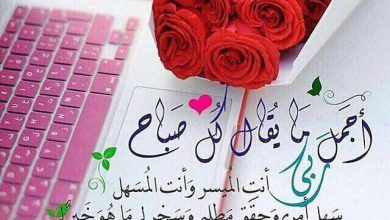 أجمل ما يُقال كُل صَباح
ربي
أنت الميسر وأنت المُسَهل
سهل أمري وحقق مطلبي وسخر لي ما هو خيرٌ